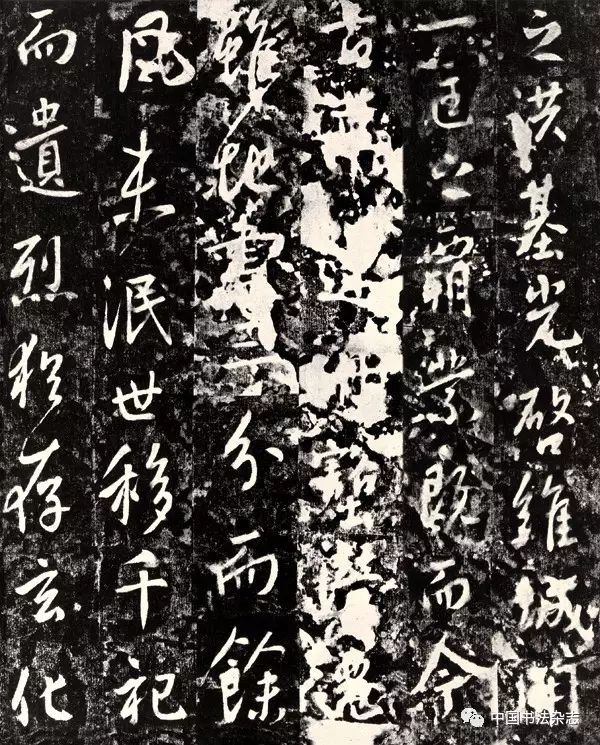 之洪基光啓維城開
一匡之霸業既而今
古革運舟壑潛遷
雖地盡三分而餘
風未泯世移千祀
而遺烈猶存玄化
中国书法杂志